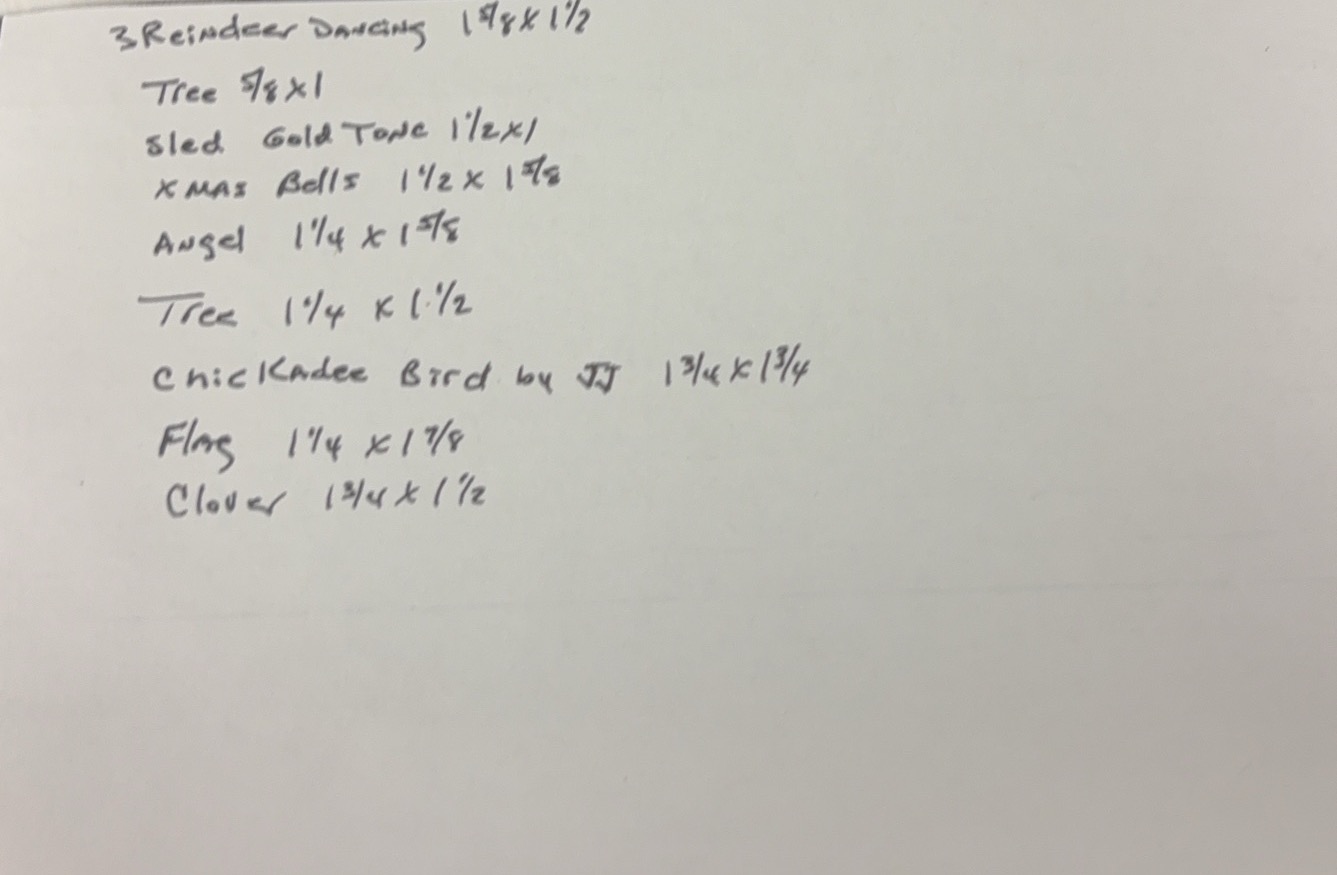 3 Reindeer Dancing 1 5/8 x 1 1/2
Tree 5/8 x 1
Sled Gold Tone 1 1/2 x 1
XMAS Bells 1 1/2 x 1 5/8
Angel 1 1/4 x 1 5/8
Tree 1 1/4 x 1 1/2
Chickadee Bird by JJ 1 3/4 x 1 3/4
Flag 1 1/4 x 1 7/8
Clover 1 3/4 x 1 1/2